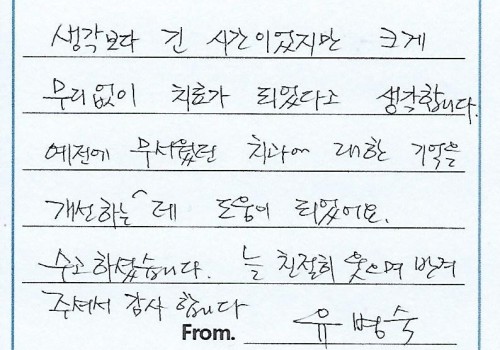 생각보다 긴 시간이었지만 크게
무리없이 치료가 되었다고 생각합니다.
예전에 무서웠던 치과에 대한 기억을
개선하는^데 도움이 되었어요.
수고하셨습니다. 늘 친절히 웃으며 반겨
주셔서 감사 합니다
From. 유병숙